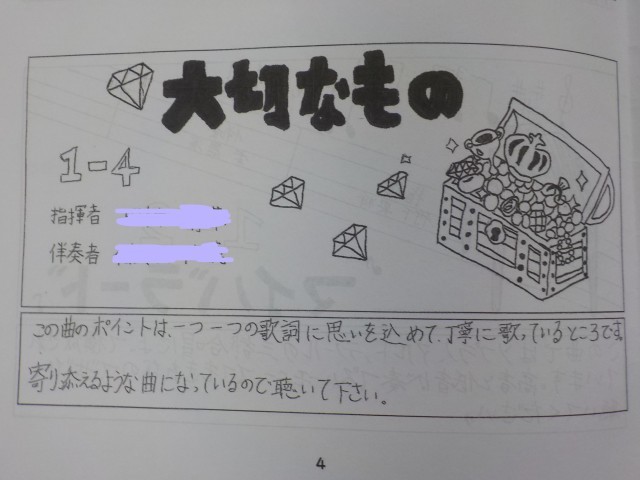 大切なもの
1-4
指揮者
伴奏者
この曲のポイントは、一つ一つの歌詞に思いを込めて、丁寧に歌っているところです。
寄り添えるような曲になっているので聴いて下さい。
マイバラード
4